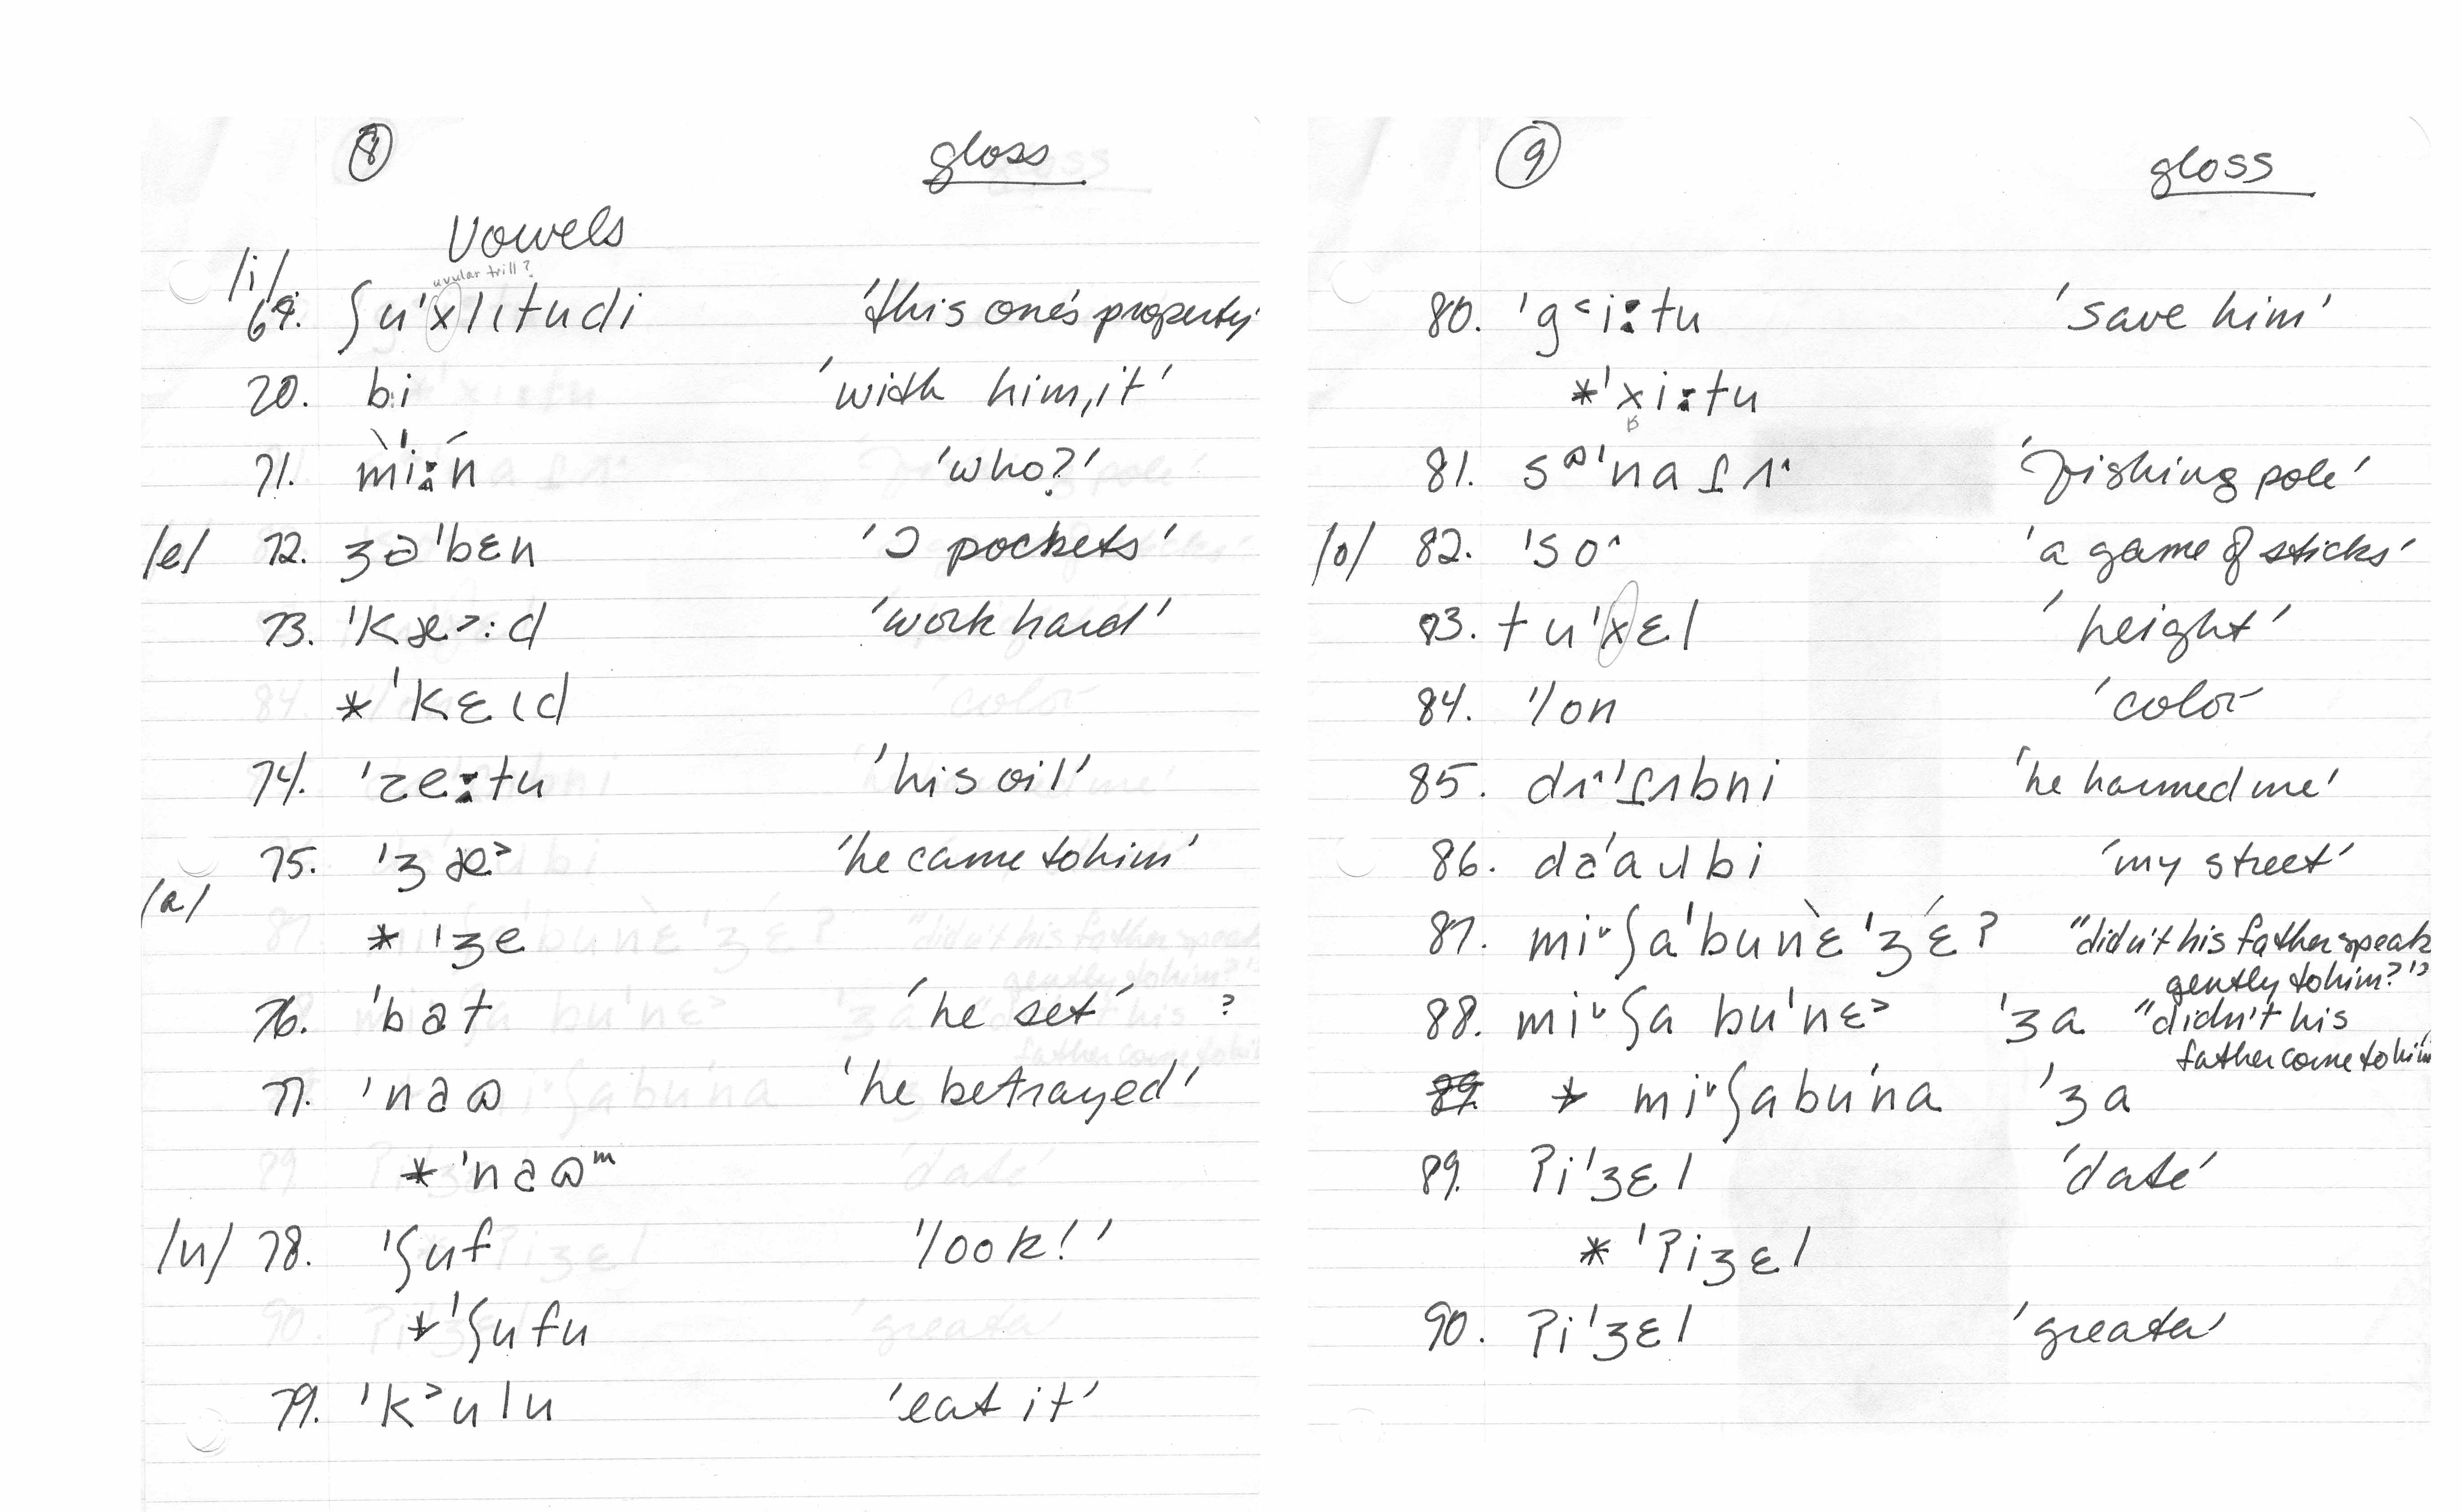 8 gloss
Vowels
uvular trill?
/i/
69. ʃu'xlɩtudi 'this one's property'
70. bi 'with him, it'
71. m̀'i:ń 'who?'
/e/ 72. ʒə'bɛn '2 pockets'
73. 'kæ>:d 'work hard'
* 'kɛɩd
74. 'ze:tu 'his oil'
75. 'ʒæ> 'he came to him'
/a/
* 'ʒe
76. 'bat 'he set' ?
77. 'naɷ 'he betrayed'
* 'naɷᵐ
/u/ 78. 'ʃuf 'look!'
* 'ʃufu
79. 'k>ulu 'eat it'
9 gloss
80. 'g<i:tu 'save him'
* 'xi:tu
81. s 'na 'fishing pole'
/o/ 82. 'so^ 'a game of sticks'
83. tu'xɛl 'height'
84. 'lon 'color'
85. 'he harmed me'
86. 'my street'
87. miᵛʃa'bunɛ̀'ʒɛ́? "didn't his father speak
gently to him?"
88. miᵛʃa bu'nɛ> 'ʒa "didn't his
father come to him
89 * miᵛʃabu'na 'ʒa
89. ʔi'ʒɛl 'date'
* 'ʔiʒɛl
90. ʔi'ʒɛl 'greater'